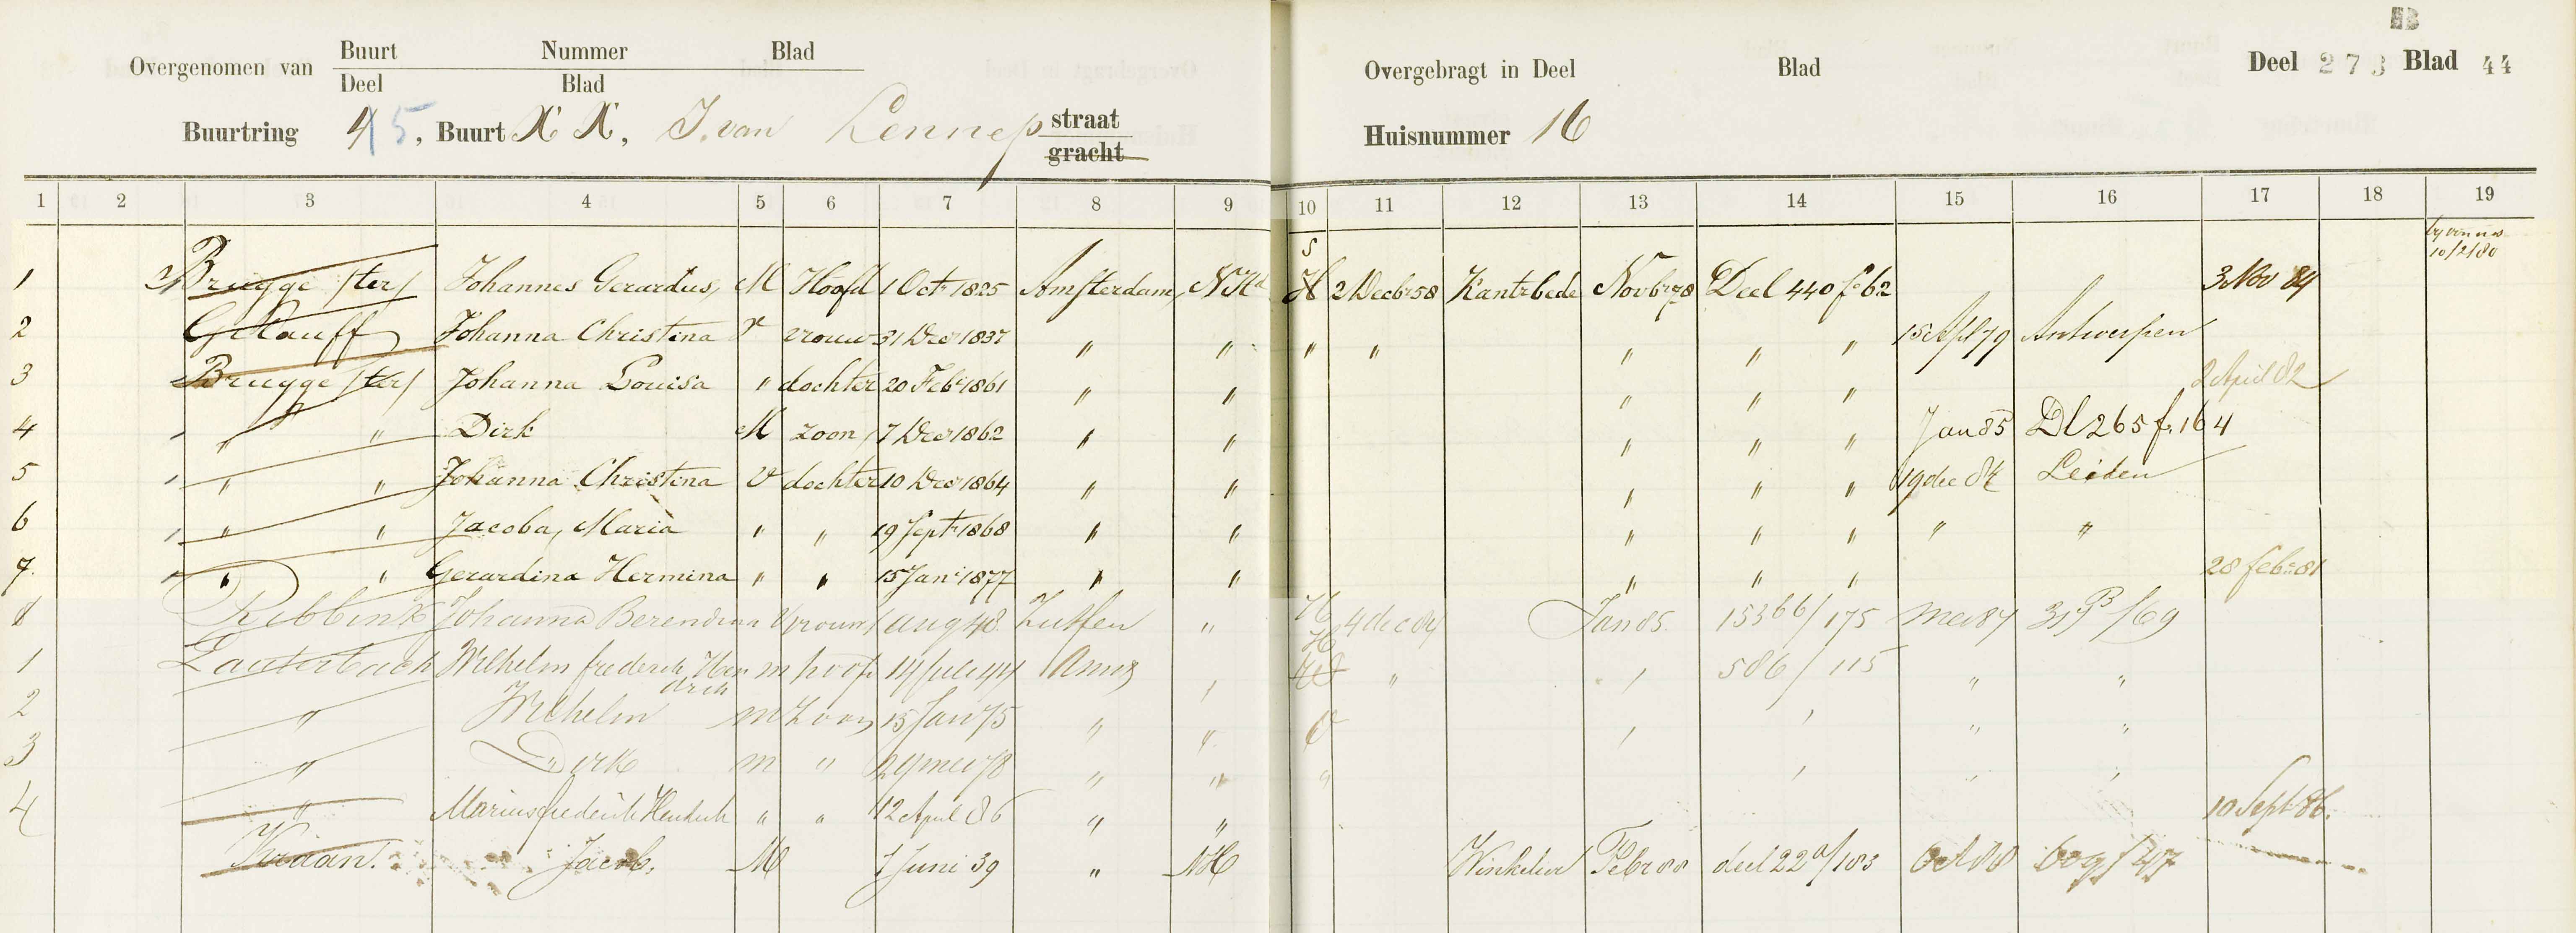 B
Overgenomen van Buurt Nummer Blad
Deel Blad
Overgebragt in Deel Blad
Deel 273 Blad 44
Buurtring 4 5, Buurt X X, J. van Lennep straat
gracht
Huisnummer 16
1 2 3 4 5 6 7 8 9 10 11 12 13 14 15 16 17 18 19
10/2/80
1 Brugge /ter/ Johannes Gerardus, M Hoofd 1 Oct 1825 Amsterdam, NHd H 2 Decbr 58 Kantbede Novbr 78 Deel 440 fo 62 3 Nov 84
2 Johanna Christina V vrouw 31 Dec 1837 " " " " " " " 15 Apl 79 Antwerpen
3 Brugge /ter/ Johanna Louisa " dochter 20 Feb 1861 " " " " " 2 April 82
4 " " Dirk M zoon 7 Dec 1862 " " " " " Jan 85 Dl 265 f. 164
5 " " Johanna Christina V dochter 10 Dec 1864 " " " " " 19 dec 84 Leiden
6 " " Jacoba, Maria " " 19 Sept 1868 " " " " " " "
7. " " Gerardina Hermina " " 15 Jan 1877 " " " " " 28 feb 81
1 Ribbink Johanna Berendina V vrouw 1 aug 48 Zutfen " H 4 dec 84 Jan 85 153 bb/175 mei 87 315 B/69
1 Lauterbach Wilhelm frederik Hendrik m hoofd 14 juli 44 Ams " " " 586/115 " "
2 " Wilhelm m Zoon 15 Jan 75 " " " " " "
3 " Dirk m " 29 mei 78 " " " " " "
4 " Marius frederik Hendrik " " 12 April 86 " " 10 Sept 86.
Kraan. Jacob. M 7 Juni 39 " NH Winkelier Febr 88 deel 22 a/183 Oct 88